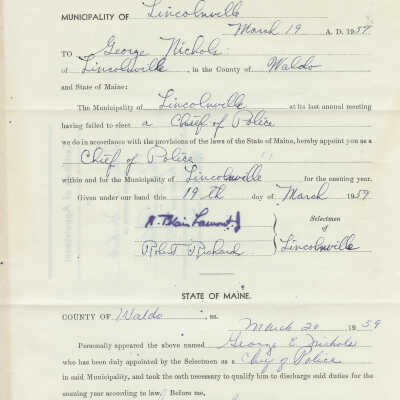 MUNICIPALITY OF Lincolnville
March 19 A. D. 1959.
TO George Nichols
of Lincolnville, in the County of Waldo
and State of Maine:
The Municipality of Lincolnville at its last annual meeting
having failed to elect a Chief of Police
we do in accordance with the provisions of the laws of the State of Maine, hereby appoint you as a
Chief of Police
within and for the Municipality of Lincolnville for the ensuing year.
Given under our hand this 19th day of March 1959
Blair
Selectmen
of
Robert Richard Lincolnville
STATE OF MAINE.
COUNTY OF Waldo, ss.
March 20 1959
Personally appeared the above named George E. Nichols
who has been duly appointed by the Selectmen as a Chief of Police
in said Municipality, and took the oath necessary to qualify him to discharge said duties for the
ensuing year according to law. Before me,